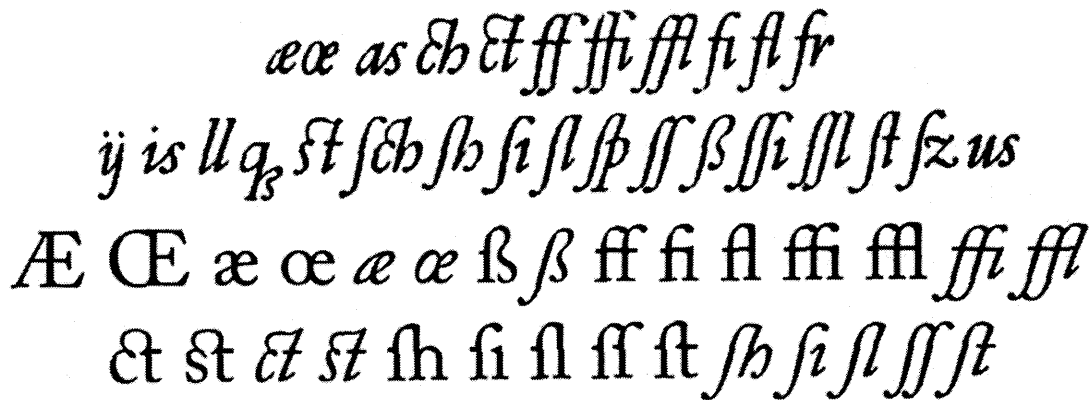 æ œ as ch ct ff ffi ffl fi fl fr
ij is ll qꝫ st ſch ſh ſi ſl ſp ſſ ß ſſi ſſl ſt ſz us
Æ Œ æ œ æ œ ß ß ff fi fl ffi ffl ffi ffl
ct st ct st ſh ſi ſl ſſ ſt ſh ſi ſl ſſ ſt